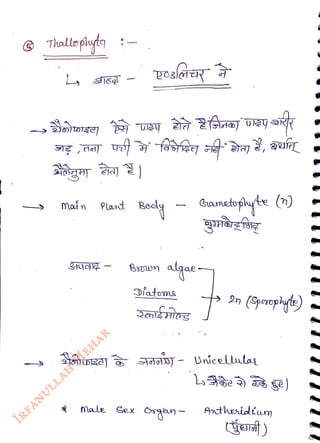 ⑤ Thallophyta :-
↳ शब्द - एण्डलिचर ने
→ थैलोफाइटा ऐसे पादप होते हैं जिनका पादप शरीर
जड़, तना पत्ती में विभेदित नहीं होता है, अर्थात्
थैलेनुमा होता है।
→ Main Plant Body - Gametophyte (n)
युग्मकोद्भिद्
अपवाद - Brown algae
Diatoms → 2n (Sporophyte)
स्लाईमोल्ड
→ थैलोफाइटा के जननांग - Unicellular
↳ जैकेट से ढके हुए।
* Male Sex Organ - Antheridium
(पुंधानी)
IRFANULLAH MEHAR